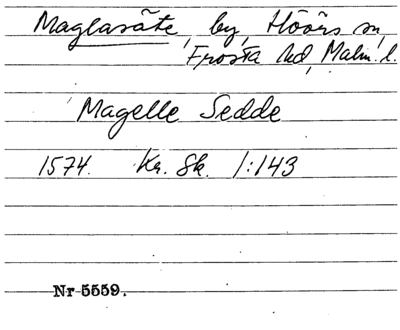 Maglasäte, by, Höörs sn,
Frosta hd, Malm. l.
Magelle Sedde
1574. Kr. Sk. 1:143
Nr 5559.